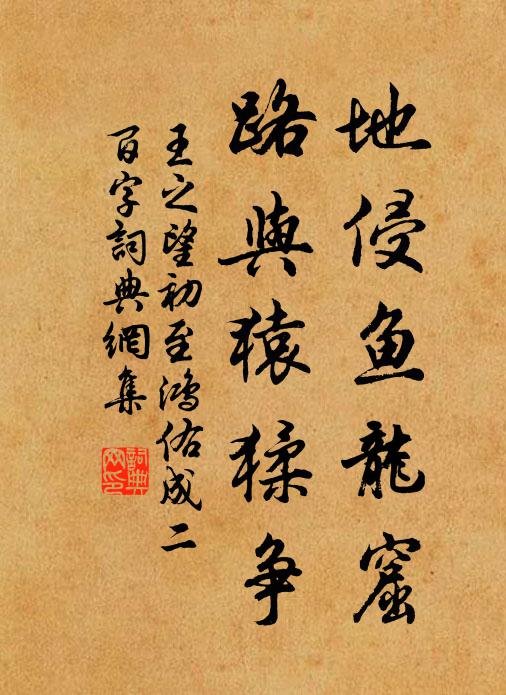 地侵鱼龍窟
路與猿猱争
王之望初至鴻佑成二
百字詞典網集
詞典
网印